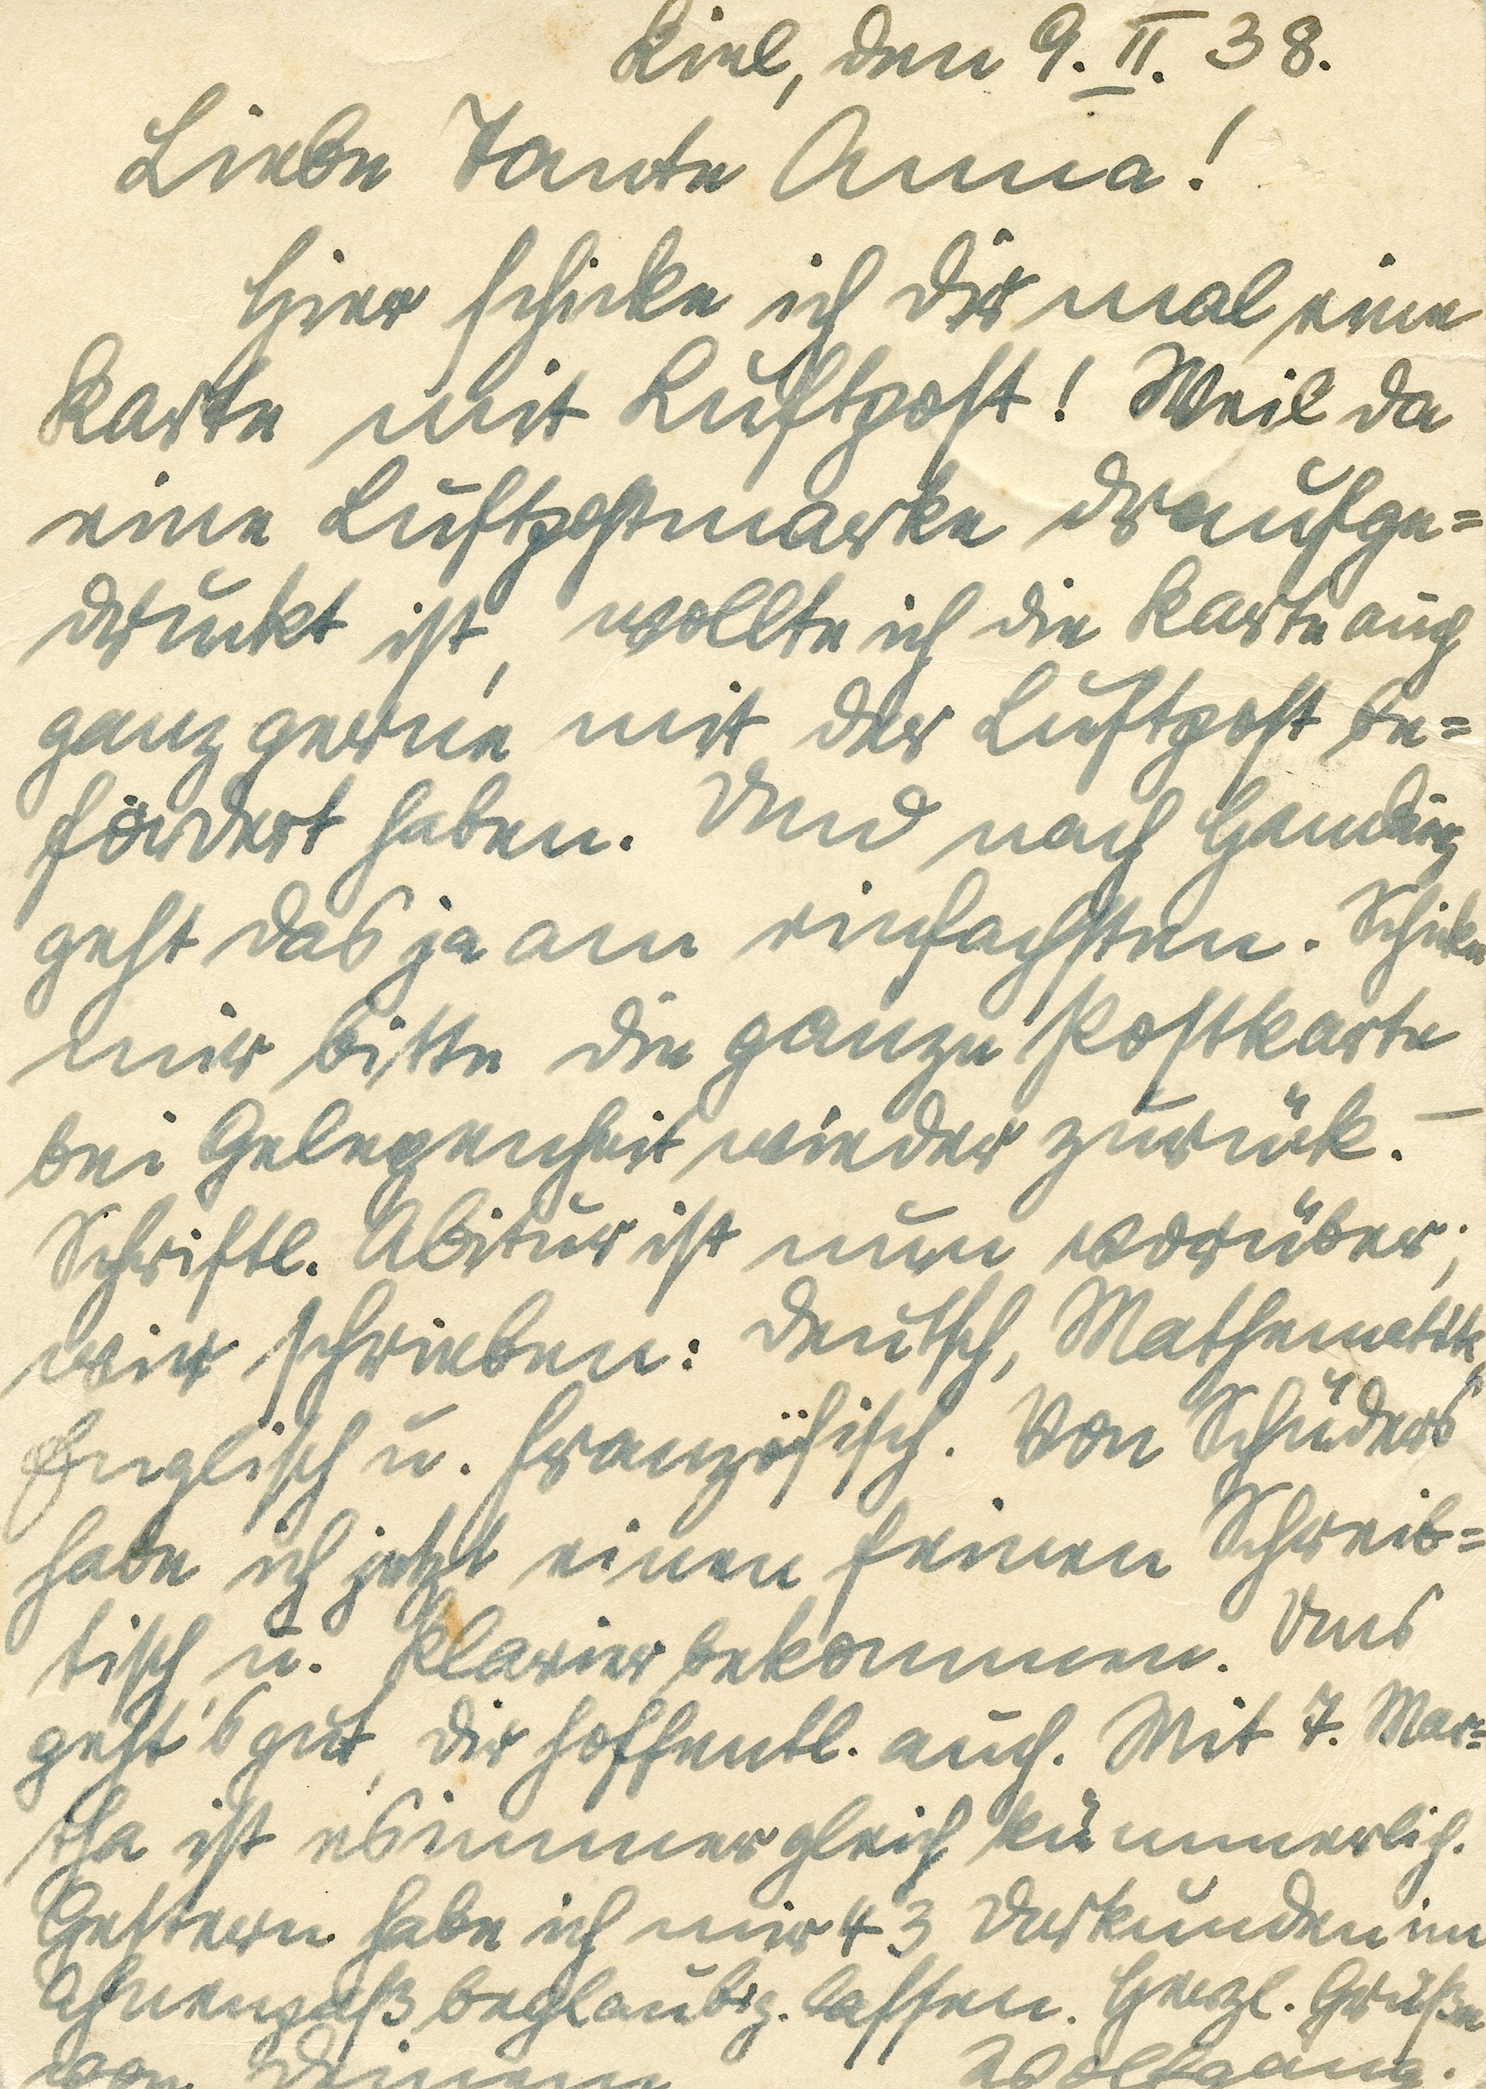 Kiel, den 9. II. 38.
Liebe Tante Anna!
Hier schicke ich Dir mal eine
Karte mit Luftpost! Weil da
eine Luftpostmarke draufge=
druckt ist, wollte ich die Karte auch
ganz gerne mit der Luftpost be=
fördert haben. Und nach Hamburg
geht das ja am einfachsten. Schicke
mir bitte die ganze Postkarte
bei Gelegenheit wieder zurück. –
Schriftl. Abitur ist nun vorüber;
wir schrieben: Deutsch, Mathematik,
Englisch u. Französisch. Von Schüders
habe ich jetzt einen feinen Schreib=
tisch u. Klavier bekommen. Uns
geht's gut, Dir hoffentl. auch. Mit T. Mar=
tha ist es immer gleich kümmerlich.
Gestern habe ich mir 43 Urkunden im
Ahnenpaß beglaubig. lassen. Herzl. Grüße
von Deinem Wolfgang.